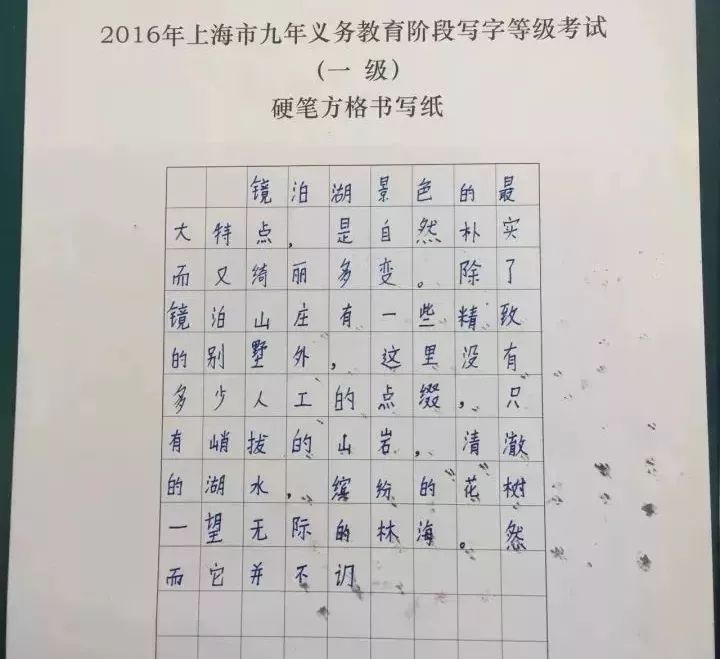 2016年上海市九年义务教育阶段写字等级考试
（一 级）
硬笔方格书写纸
镜泊湖景色的最
大特点，是自然朴实
而又绮丽多变。除了
镜泊山庄有一些精致
的别墅外，这里没有
多少人工的点缀，只
有峭拔的山岩，清澈
的湖水，缤纷的花树
一望无际的林海。然
而它并不